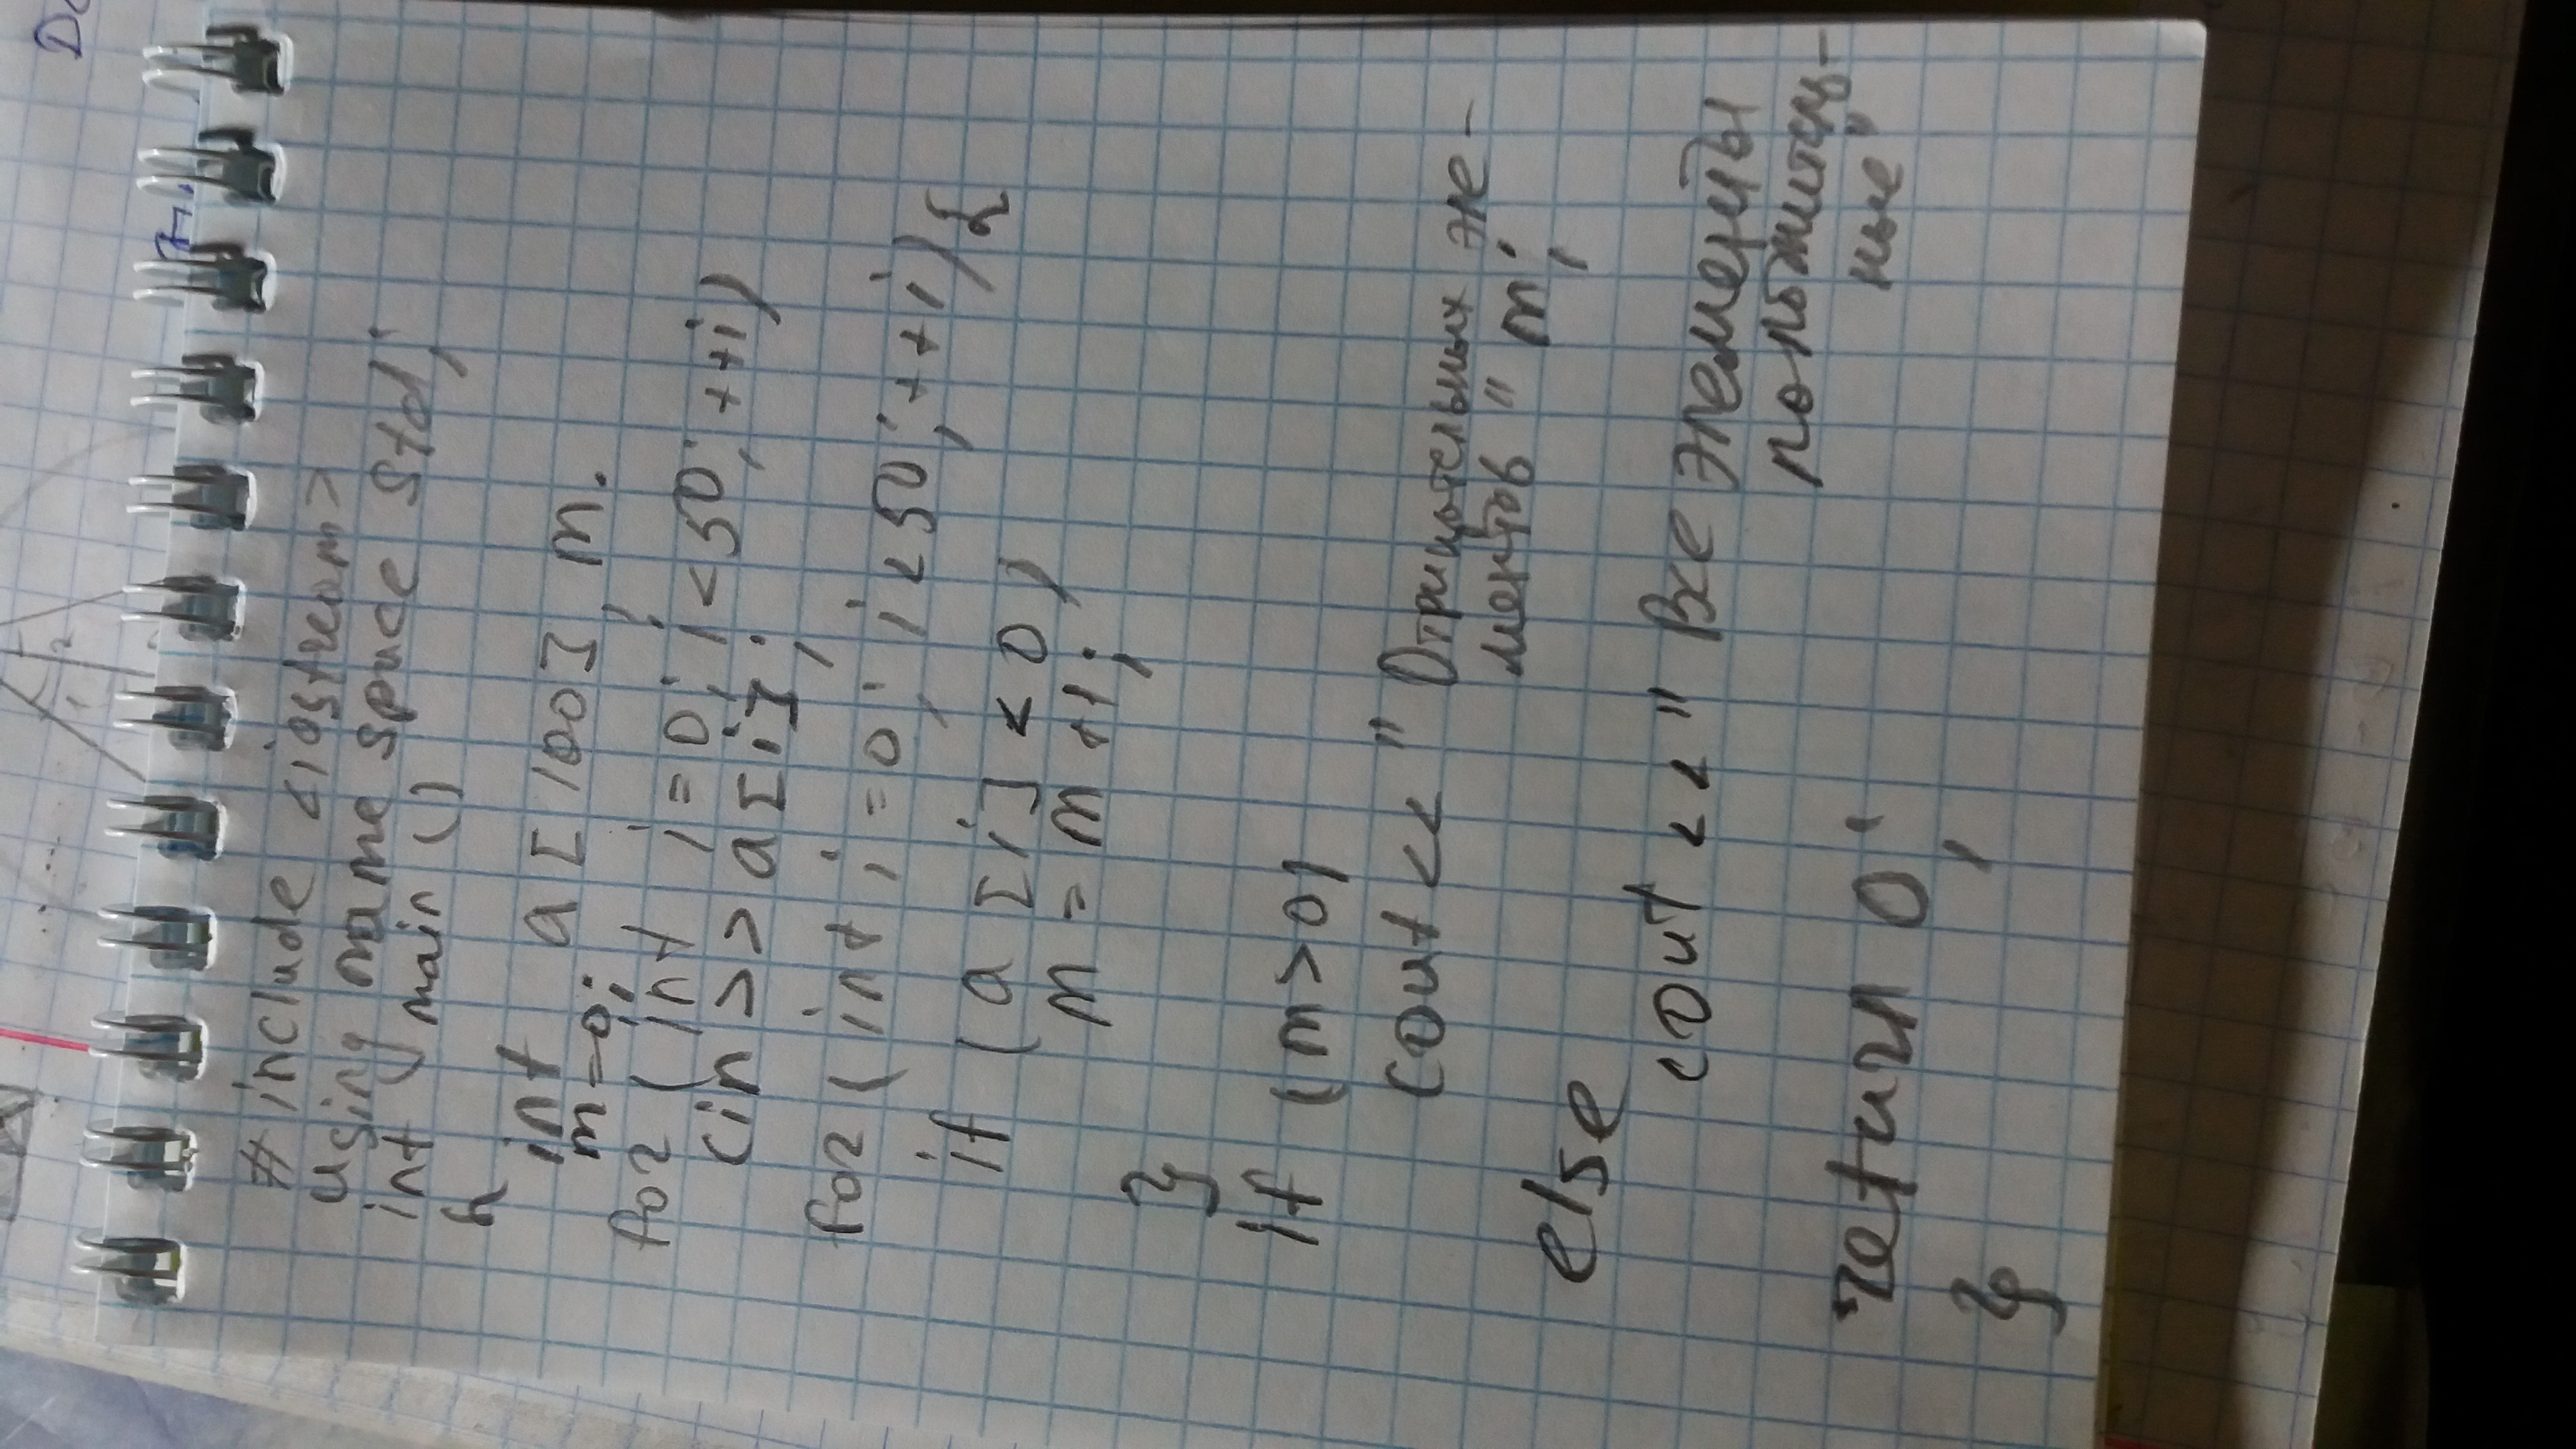 # include <iostream>
using name space std;
int main ()
{
int a[100] m.
m=0;
for (int i=0; i<50; ++i)
cin >> a[i];
for (int i=0; i<50; ++i){
if (a[i] < 0)
m = m +1;
}
if (m>0)
cout << " Отрицательных эле-
ментов " m;
else
cout << " Все элементы
положитель-
ные"
return 0;
}